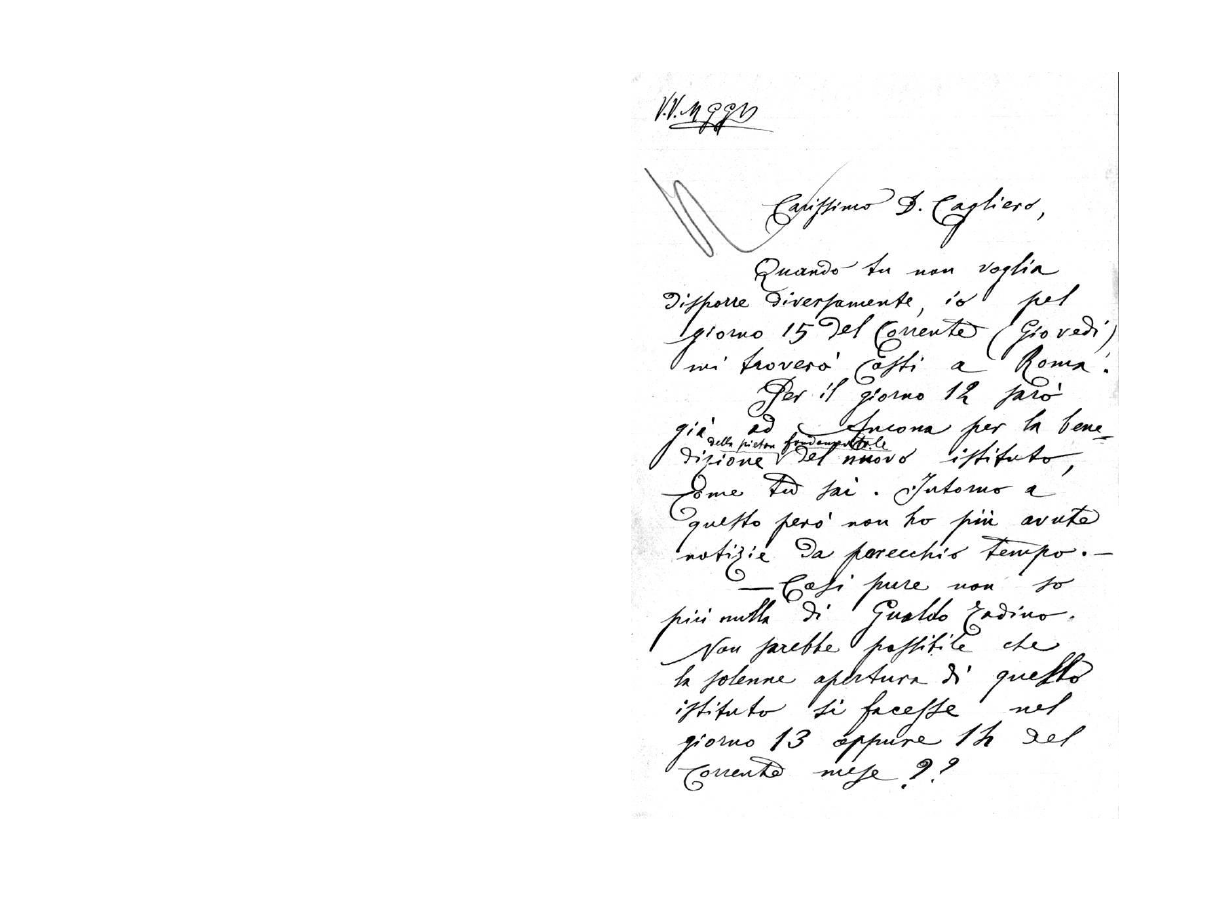 V.V. M GG
Carissimo D. Cagliero,
Quando tu non voglia
disporre diversamente, io pel
giorno 15 del corrente (Giovedì)
mi troverò costì a Roma.
Per il giorno 12 sarò
già ad Ancona per la bene-
della pietra fondamentale
dizione del nuovo istituto,
come tu sai. Intorno a
questo però non ho più avute
notizie da parecchio tempo. —
— Così pure non so
più nulla di Gualdo Tadino.
Non sarebbe possibile che
la solenne apertura di questo
istituto si facesse nel
giorno 13 oppure 14 del
corrente mese ??